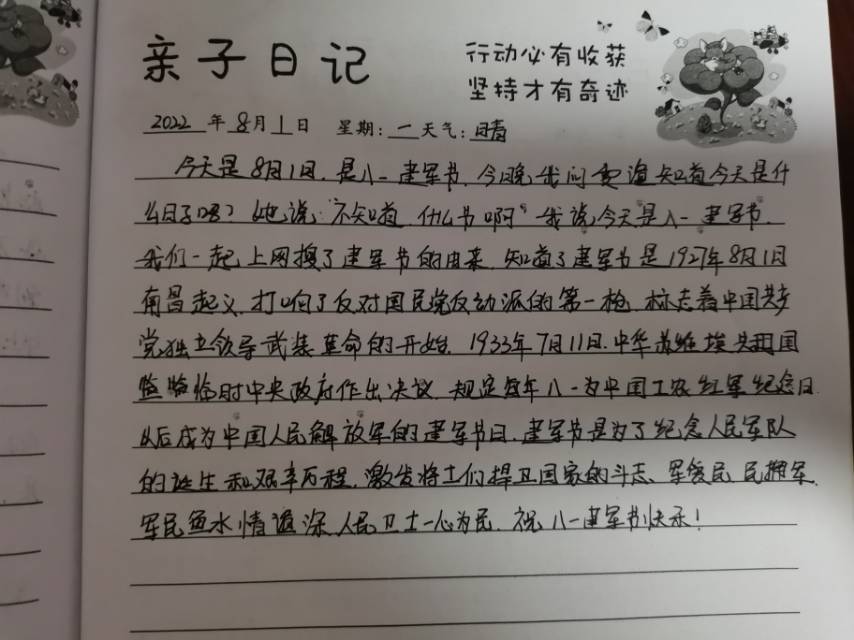 亲子日记
行动必有收获
坚持才有奇迹
2022年8月1日 星期:一 天气:晴
今天是8月1日，是八一建军节，今晚我问 知道今天是什
么日子吗？她说“不知道，什么节啊”我说今天是八一建军节，
我们一起上网搜了建军节的由来，知道了建军节是1927年8月1日
南昌起义，打响了反对国民党反动派的第一枪，标志着中国共产
党独立领导武装革命的开始，1933年7月11日，中华苏维埃共和国
临时中央政府作出决议，规定每年八一为中国工农红军纪念日，
以后成为中国人民解放军的建军节日，建军节是为了纪念人民军队
的诞生和艰辛历程，激发将士们捍卫国家的斗志，军爱民，民拥军，
军民鱼水情谊深，人民卫士一心为民，祝八一建军节快乐！